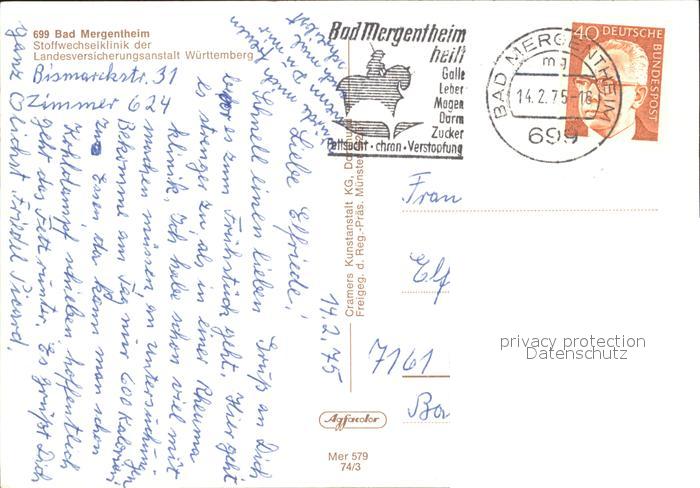 699 Bad Mergentheim
Stoffwechselklinik der
Landesversicherungsanstalt Württemberg
Bismarckstr. 31
Zimmer 624
14.2.75
Liebe Elfriede!
Schnell einen lieben Gruß an Dich
bevor es zum Frühstück geht. Hier geht
es strenger zu als in einer Rheuma
klinik. Ich habe schon viel mit
machen müssen, an Untersuchungen
Bekomme am Tag nur 600 Kalorien
zu Essen da kann man schon
Kohldampf schieben, hoffentlich
geht das Fett runter. Es grüßt Dich
ganz Friedel
mal
Cramers Kunstanstalt KG, Dortmund
Freigeg. d. Reg.-Präs. Münster
Agfacolor
Mer 579
74/3
Bad Mergentheim
heilt
Galle
Leber
Magen
Darm
Zucker
Fettsucht · chron · Verstopfung
BAD MERGENTHEIM
mg
14.2.75-18
699
40 DEUTSCHE
BUNDESPOST
Frau
Elf
7161
privacy protection
Datenschutz